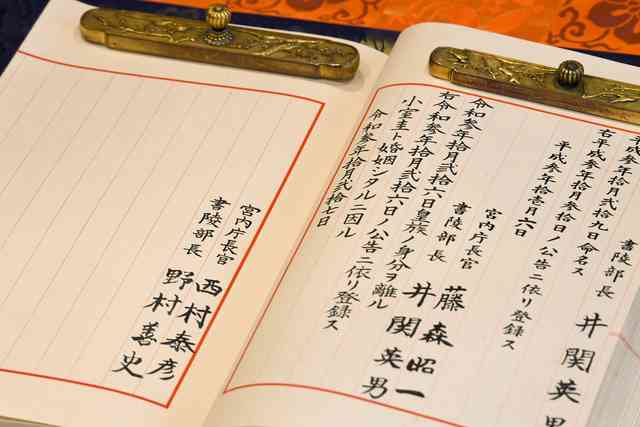 書陵部長 井関英
平成参年拾月弐拾九日命名ス
右平成参年拾月参拾日ノ公告ニ依リ登録ス
平成参年拾壱月六日
宮内庁長官 藤森昭一
書陵部長 井関英男
令和参年拾月弐拾六日皇族ノ身分ヲ離ル
小室圭ト婚姻シタルニ因ル
右令和参年拾月弐拾六日ノ公告ニ依リ登録ス
令和参年拾月弐拾七日
宮内庁長官 西村泰彦
書陵部長 野村善史